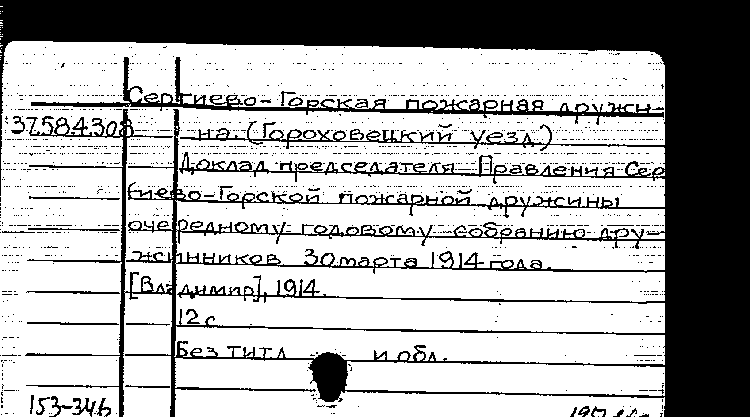 Сергиево-Горская пожарная дружи-
37.584.308 на. (Гороховецкий уезд.)
Доклад председателя Правления Сер
гиево-Горской пожарной дружины
очередному годовому собранию дру-
жинников 30 марта 1914 года.
[Владимир], 1914.
12 с
Без титл и обл.
153-346